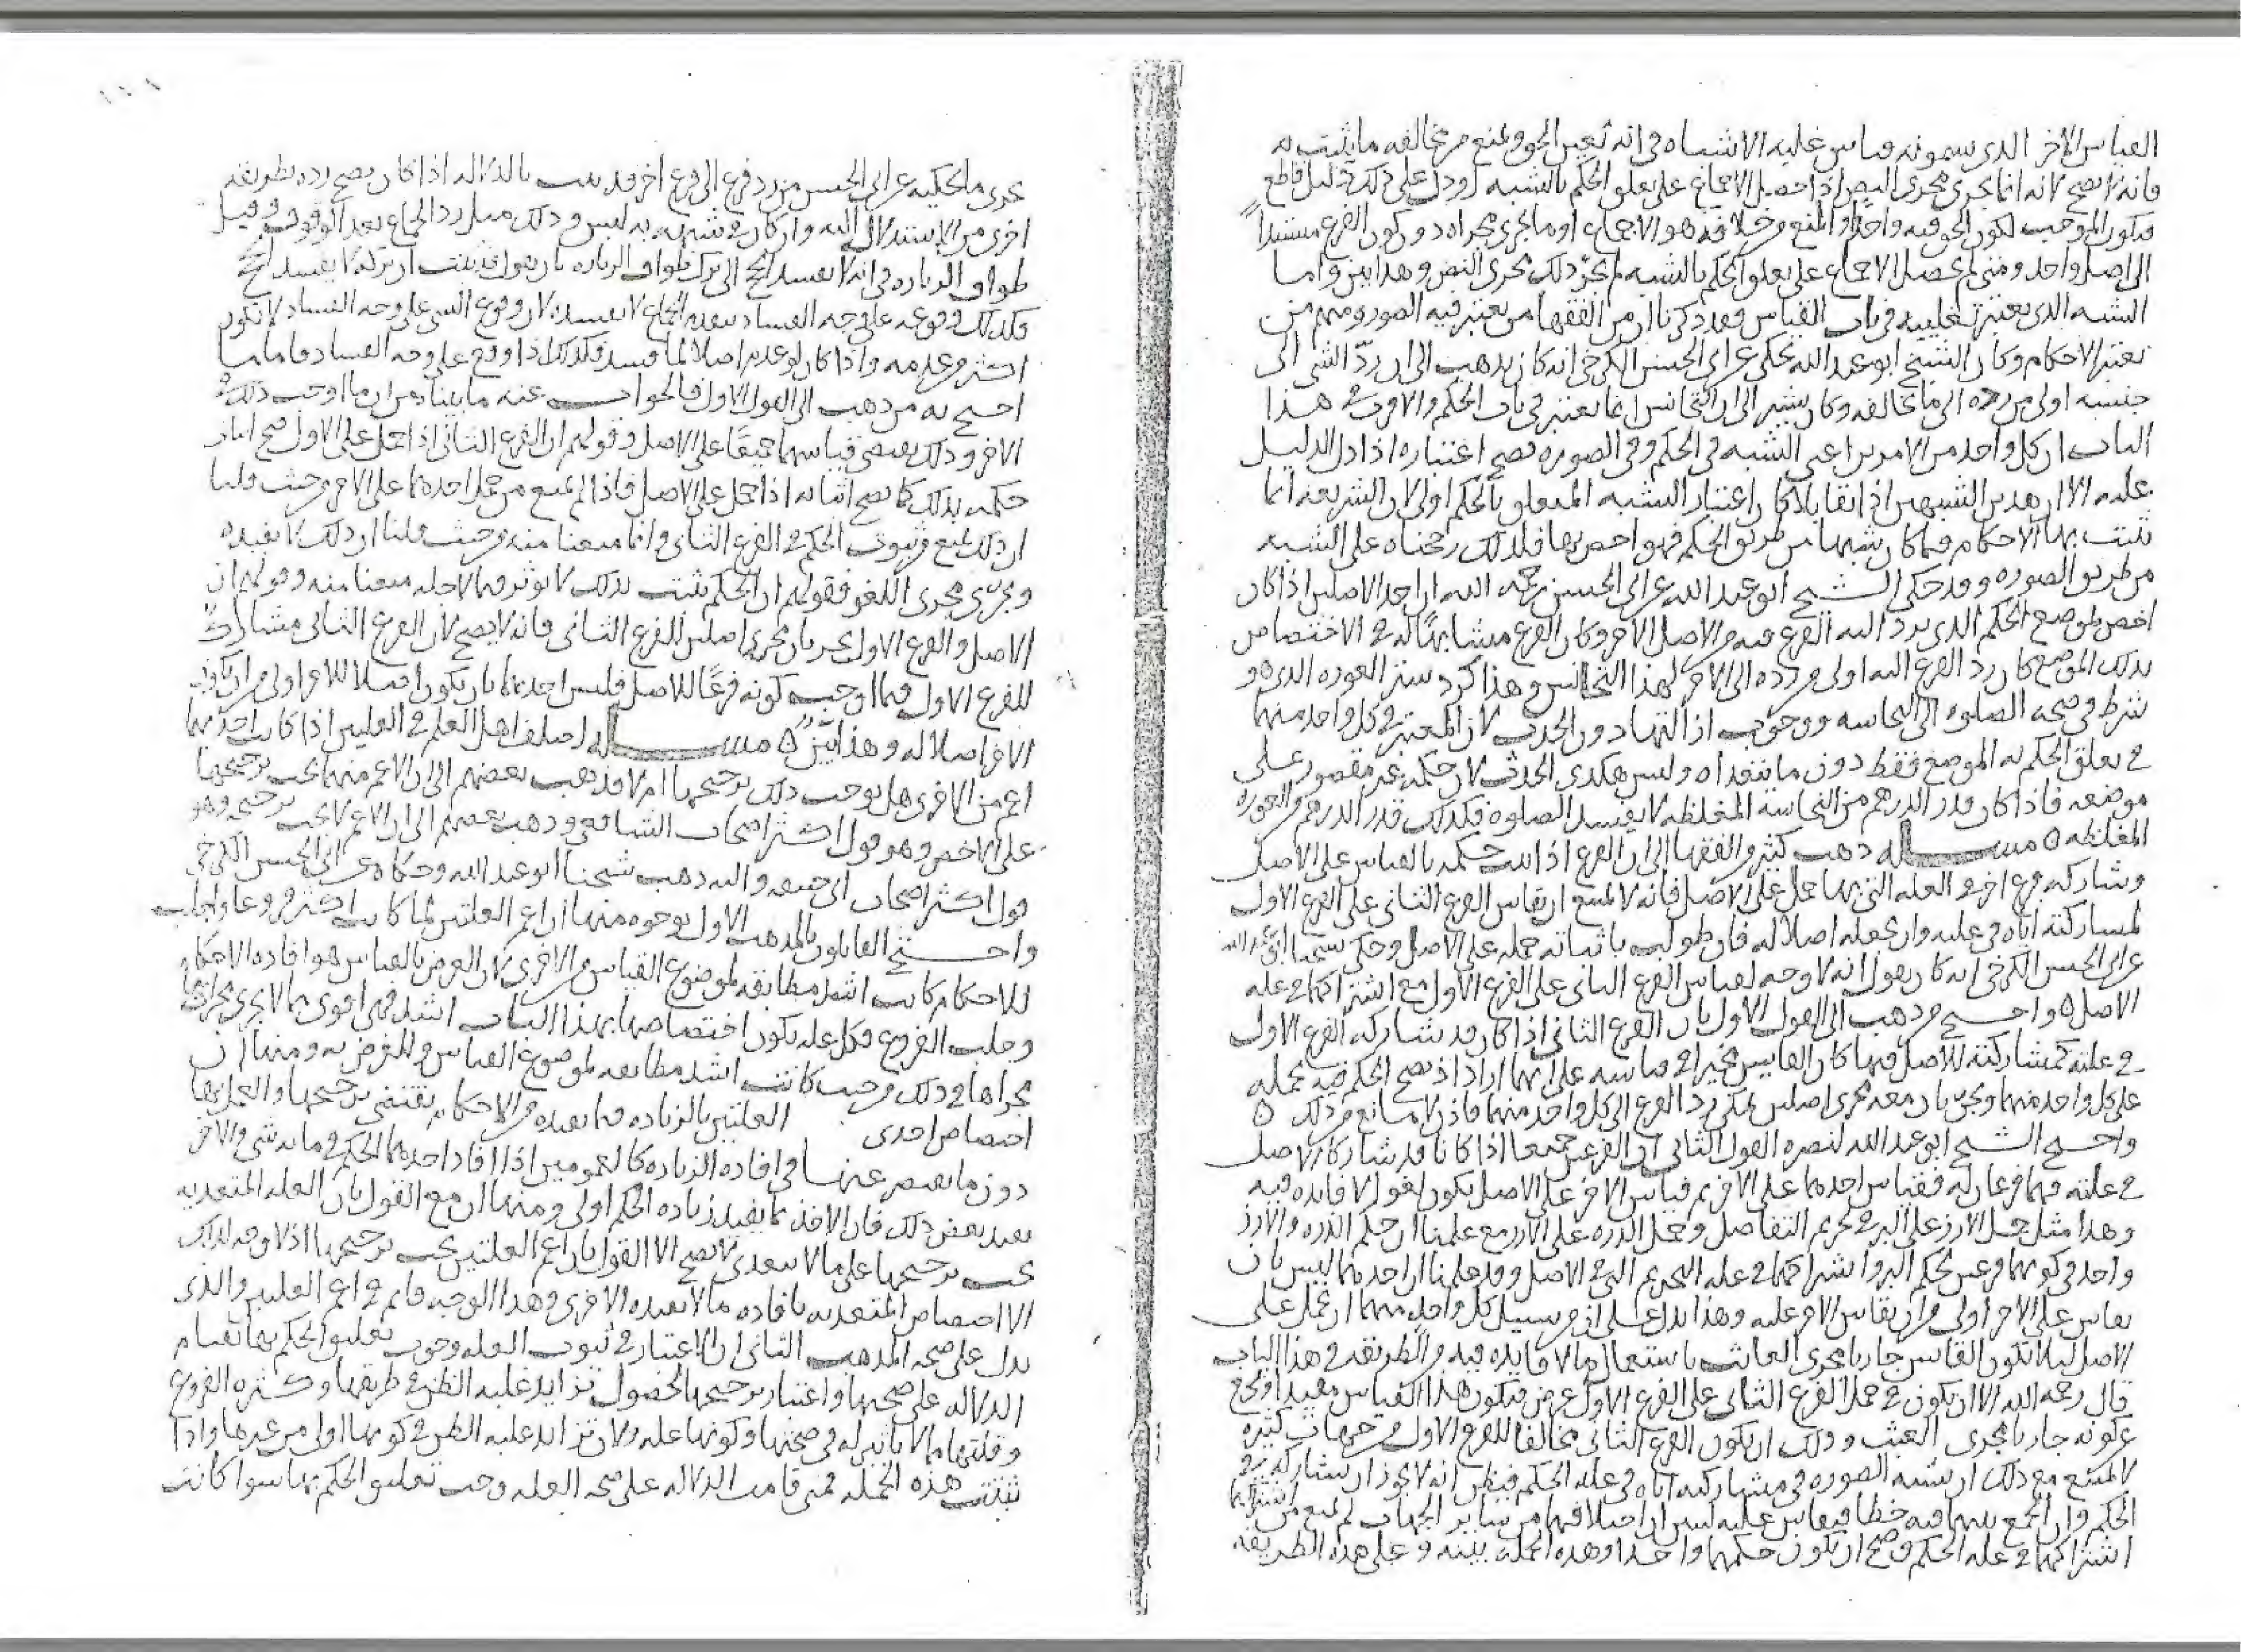 القياس الاخر الذي يسمونه قياس غلبه الاشباه في انه تعين الحق ويمنع من مخالفه ما يثبت به
فانه لا يصح لانه انما يجري مجرى النص اذا حصل الاجماع على تعلق الحكم بالشبه او دل على ذلك دليل قاطع
فيكون الموجب لكون الحق فيه واحدا والمنع من خلافه هو الاجماع او ما يجري مجراه دون كون الفرع مستندا
الى اصل واحد ومتى لم يحصل الاجماع على تعلق الحكم بالشبه لم يجر ذلك مجرى النص وهذا بين واما
الشبه الذي يعتبر تغليبه في باب القياس فقد ذكرنا ان من الفقها من يعتبر فيه الصوره ومنهم من
يعتبر الاحكام وكان الشيخ ابو عبد الله يحكي عن ابي الحسن الكرخي انه كان يذهب الى ان ردّ الشي الى
جنسه اولى من رده الى ما يخالفه وكان يشير الى ان التجانس انما يعتبر في باب الحكم والاقرب في هذا
الباب ان كل واحد من الامرين اعني الشبه في الحكم وفي الصوره يصح اعتباره اذا دل الدليل
عليه الا ان هذين الشبهين اذا تقابلا كان اعتبار الشبه المتعلق بالحكم اولى لان الشريعه انما
تثبت بها الاحكام فما كان شبها من طريق الحكم فهو اخص بها فلذلك رجحناه على الشبه
من طريق الصوره وقد حكى الشيخ ابو عبد الله عن ابي الحسن رحمه الله ان احد الاصلين اذا كان
اخص بموضع الحكم الذي يرد اليه الفرع فيه من الاصل الاخر وكان الفرع مشابهًا له في الاختصاص
بذلك الموضع كان رد الفرع اليه اولى من رده الى الاخر لهذا التجانس وهذا كرد ستر العوره الذي هو
شرط في صحه الصلوه الى النجاسه ووجوب ازالتها دون الحدث لان المعتبر في كل واحد منهما
في تعلق الحكم به الموضع فقط دون ما يتعداه وليس هكذى الحدث لان حكمه غير مقصور على
موضعه فاذا كان قدر الدرهم من النجاسه المغلظه لا يفسد الصلوه فكذلك قدر الدرهم من العوره
المغلظه ٥ مســـــاله ذهب كثير من الفقها الى ان الفرع اذا ثبت حكمه بالقياس على الاصل
وشاركه فرع اخر في العله التي بها حمل على الاصل فانه لا يمتنع ان يقاس الفرع الثاني على الفرع الاول
لمشاركته اياه في علته وان يجعله اصلا له فان طولب باثباته حمله على الاصل وحكى شيخنا ابو عبد الله
عن ابي الحسن الكرخي انه كان يقول انه لا وجه لقياس الفرع الثاني على الفرع الاول مع اشتراكهما في عله
الاصل ٥ واحتج من ذهب الى القول الاول بان الفرع الثاني اذا كان قد شاركه الفرع الاول
في علته كمشاركته للاصل فيها كان القايس مخيرا في قياسه على ايهما اراد اذ يصح الحكم فيه بحمله
على كل واحد منهما ويجريان معه مجرى اصلين يمكن رد الفرع الى كل واحد منهما فاذن لا مانع من ذلك ٥
واحتج الشيخ ابو عبد الله لنصره القول الثاني ان الفرعين جميعا اذا كانا قد شاركا الاصل
في علته فهما فرعان له فقياس احدهما على الاخر ثم قياس الاخر على الاصل يكون لغوا لا فايده فيه
وهذا مثل حمل الارز على البر في تحريم التفاضل وحمل الذره على الارز مع علمنا ان حكم الذره والارز
واحد في كونهما فرعين لحكم البر واشتراكهما في عله التحريم التي في الاصل وقد علمنا ان احدهما ليس بان
يقاس على الاخر اولى من ان يقاس الاخر عليه وهذا يدل على ان من سبيل كل واحد منهما ان يحمل على
الاصل ليلا يكون القايس جاريا مجرى العابث باستعمال ما لا فايده فيه والطريقه في هذا الباب
قال رحمه الله الا ان يكون في حمل الفرع الثاني على الفرع الاول غرض فيكون هذا القياس مفيدا ويخرج
عن كونه جاريا مجرى العبث وذلك ان يكون الفرع الثاني مخالفا للفرع الاول من جهات كثيره
لا يمتنع مع ذلك ان يشبه الصوره في مشاركته اياه في عله الحكم فيظن انه لا يجوز ان يشاركه في
الحكم وان الجمع بينهما فيه خطا فيقاس عليه ليبين ان اختلافهما من ساير الجهات لم يمنع من
اشتراكهما في عله الحكم وصح ان يكون حكمهما واحدا وهذه الجمله بينه وعلى هذه الطريقه
يجرى ما يحكيه عن ابي الحسن من رد فرع الى فرع اخر قد ثبت بالدلاله اذا كان يصح رده بطريقه
اخرى من الاستدلال اليه وان كان في شبهه به لبس وذلك مثل رد الجماع بعد الوقوف وقبل
طواف الزياره في انه لا يفسد الحج الى ترك طواف الزياره بان يقول قد ثبت ان تركه لا يفسد الحج
فكذلك وقوعه على وجه الفساد بتقدم الجماع لا يفسده لان وقوع الشي على وجه الفساد لا يكون
اكثر من عدمه واذا كان لو عدم اصلا لما فسد فكذلك اذا وقع على وجه الفساد فاما ما
احتج به من ذهب الى القول الاول فالجواب عنه ما بيناه من ان ما اوجب ذلك في
الاخر وذلك يقتضي قياسهما جميعًا على الاصل وقولهم ان الفرع الثاني اذا حمل على الاول صح اثبات
حكمه بذلك كما يصح اثباته اذا حمل على الاصل فاذا لم يمتنع من حمل احدهما على الاخر من حيث قلنا
ان ذلك يمنع من ثبوت الحكم في الفرع الثاني وانما منعنا منه من حيث قلنا ان ذلك لا يفيده
ويجري مجرى اللغو فقولهم ان الحكم ثبت بذلك لا يوثر فيما لاجله منعنا منه وقولهم ان
الاصل والفرع الاول يجريان مجرى اصلين للفرع الثاني فانه لا يصح لان الفرع الثاني مشارك
للفرع الاول فيما اوجب كونه فرعًا للاصل فليس احدهما بان يكون اصلا للاخر اولى من ان يكون
الاخر اصلا له وهذا بيّن ٥ مســـــاله اختلف اهل العلم في العلتين اذا كانت احداهما
اعم من الاخرى هل يوجب ذلك ترجيحها ام لا فذهب بعضهم الى ان الاعم منهما يجب ترجيحها
على الاخص وهو قول اكثر اصحاب الشافعي وذهب بعضهم الى ان الاعم لا يجب ترجيحه وهو
قول اكثر اصحاب ابي حنيفه واليه ذهب شيخنا ابو عبد الله وحكاه عن ابي الحسن الكرخي
واحتج القايلون بالمذهب الاول بوجوه منها ان اعم العلتين لما كانت اكثر فروعا واجلب
للاحكام كانت اشد مطابقه لموضوع القياس من الاخرى لان الغرض بالقياس هو افاده الاحكام
وجلب الفروع فكل عله يكون اختصاصها بهذا الباب اشد فهي اقوى مما لا يجري مجراها
مجراها في ذلك من حيث كانت اشد مطابقه لموضوع القياس والغرض به ومنها ان
اختصاص احدى العلتين بالزياده فيما تفيده من الاحكام يقتضي ترجيحها والعمل بها
دون ما يقصر عنها في افاده الزياده كالعمومين اذا افاد احدهما الحكم في مايه شي والاخر
يفيد بعض ذلك فان الاخذ بما يفيد زياده الحكم اولى ومنها ان مع القول بان العله المتعديه
يجب ترجيحها على ما لا يتعدى لا يصح الا القول بان اعم العلتين يجب ترجيحها اذ لا وجه لذلك
الا اختصاص المتعديه بافاده ما لا تفيده الاخرى وهذا الوجه قايم في اعم العلتين والذي
يدل على صحه المذهب الثاني ان الاعتبار في ثبوت العله ووجوب تعليق الحكم بها بقيام
الدلاله على صحتها واعتبار ترجيحها لحصول تزايد غلبه الظن في طريقها وكثره الفروع
وقلتها مما لا تاثير له في صحتها وكونها عله ولا في تزايد غلبه الظن في كونها اولى من غيرها واذا
ثبتت هذه الجمله فمتى قامت الدلاله على صحه العله وجب تعليق الحكم بها سوا كانت